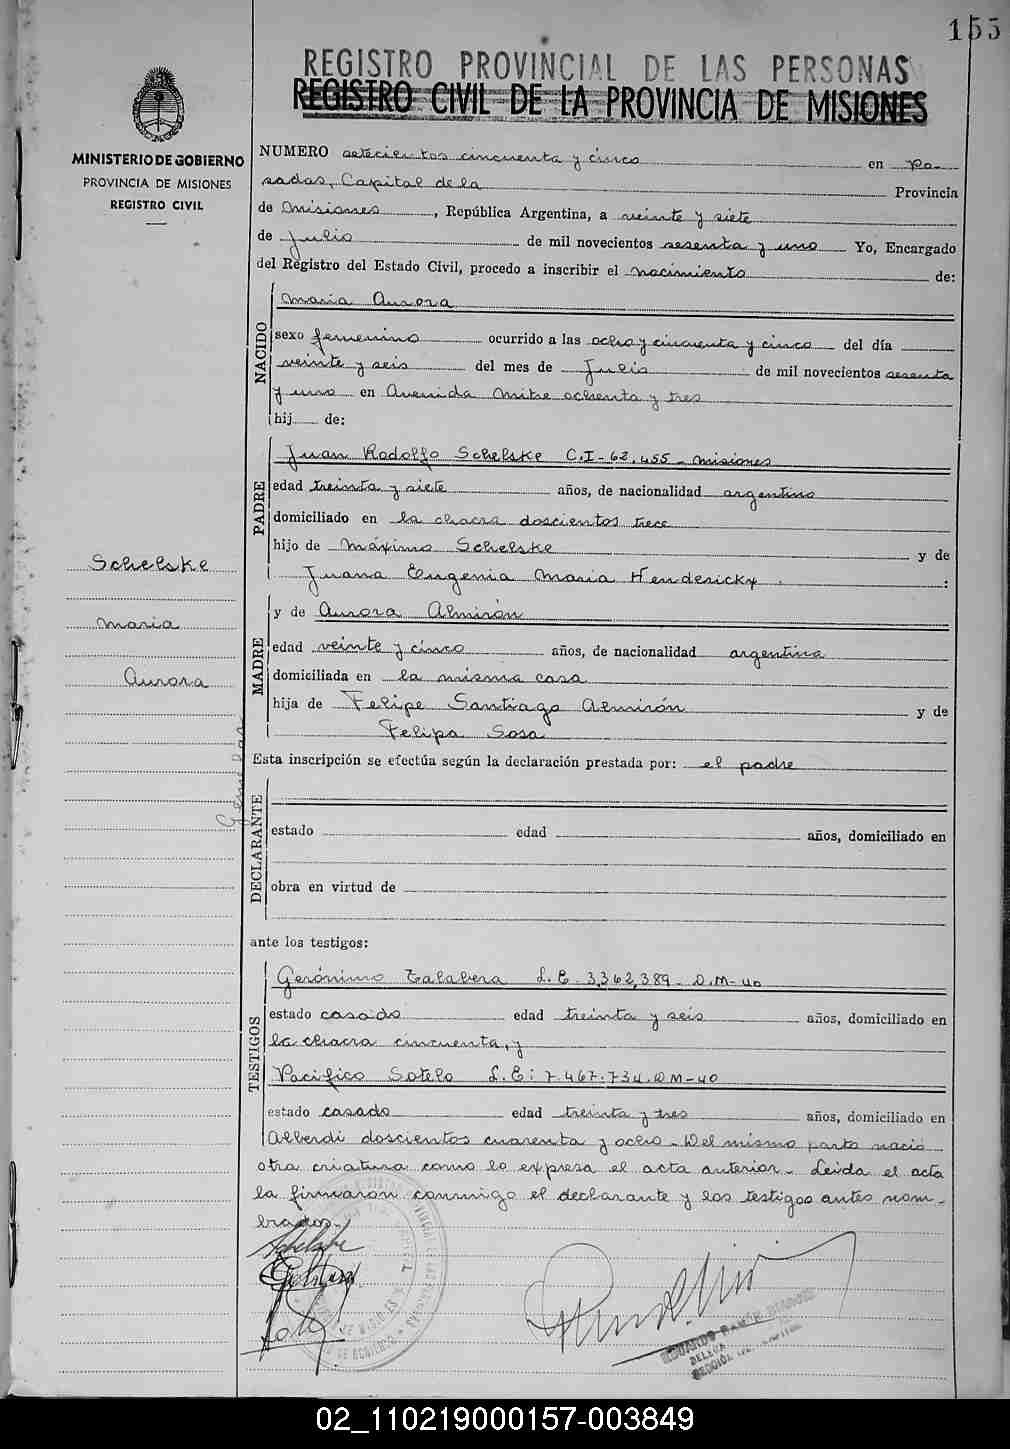 155
REGISTRO PROVINCIAL DE LAS PERSONAS
REGISTRO CIVIL DE LA PROVINCIA DE MISIONES
MINISTERIO DE GOBIERNO
PROVINCIA DE MISIONES
REGISTRO CIVIL
NUMERO setecientos cincuenta y cinco en Po-
sadas, Capital de la Provincia
de Misiones, República Argentina, a veinte y siete
de Julio de mil novecientos sesenta y uno Yo, Encargado
del Registro del Estado Civil, procedo a inscribir el nacimiento de:
NACIDO
Maria Aurora
sexo femenino ocurrido a las ocho y cincuenta y cinco del día
veinte y seis del mes de Julio de mil novecientos sesenta
y uno en Avenida Mitre ochenta y tres
hij de:
PADRE
Juan Rodolfo Schelske C.I-62.455-Misiones
edad treinta y siete años, de nacionalidad argentino
domiciliado en la chacra doscientos trece
hijo de Máximo Schelske y de
Juana Eugenia Maria Henderickx. :
Schelske
Maria
Aurora
MADRE
y de Aurora Almirón
edad veinte y cinco años, de nacionalidad argentina
domiciliada en la misma casa
hija de Felipe Santiago Almirón y de
Felipa Sosa
Esta inscripción se efectúa según la declaración prestada por: el padre
DECLARANTE
estado edad años, domiciliado en
obra en virtud de
ante los testigos:
TESTIGOS
Gerónimo Talabera L.E. 3,362,389-D.M-40
estado casado edad treinta y seis años, domiciliado en
la chacra cincuenta, y
Pacifico Sotelo L.E: 7.467.734.DM-40
estado casado edad treinta y tres años, domiciliado en
Alberdi doscientos cuarenta y ocho-Del mismo parto nació
otra criatura como lo expresa el acta anterior- Leida el acta
la firmaron conmigo el declarante y los testigos antes nom-
brados.-
Schelske
02_110219000157-003849